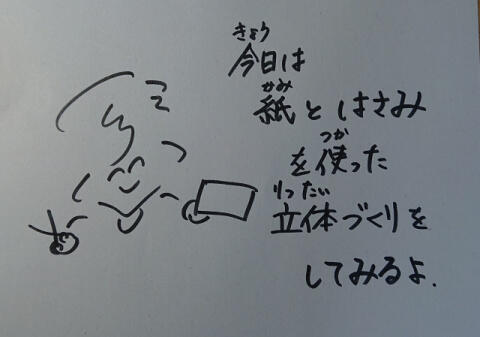 きょう
今日は
かみ
紙とはさみ
つか
を使った
りったい
立体づくりを
してみるよ.